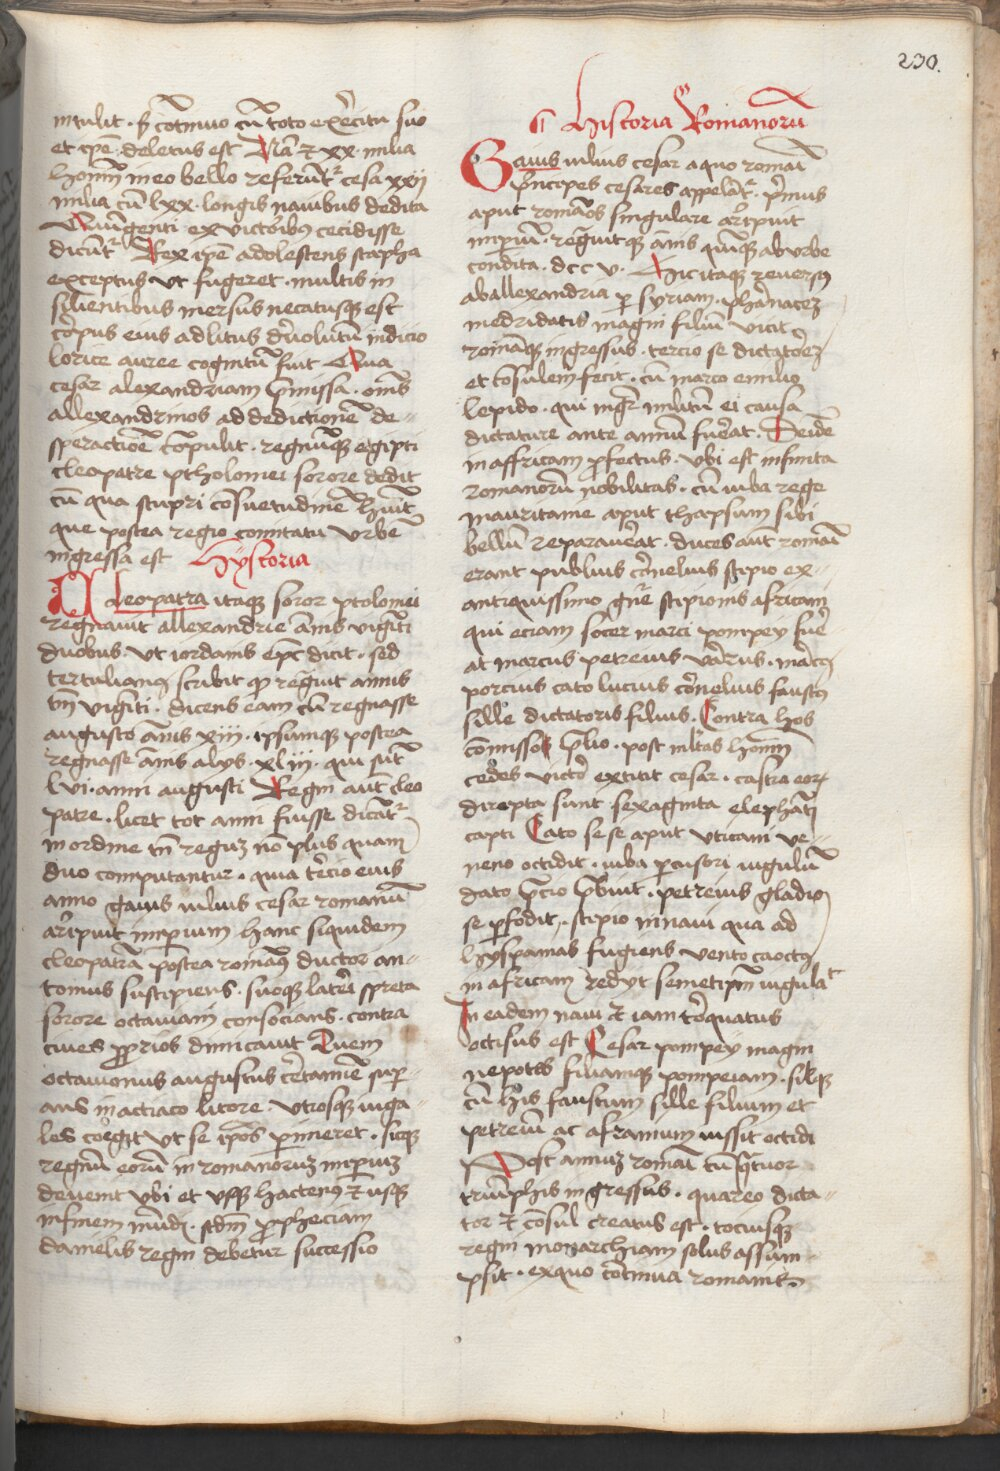 230.
intulit · s̄ cōtinuo cū toto exercitu suo
et ip̄e deletus est Nā et xx · milia
hominū in eo bello referunt᷑ cesa xxij
milia cū lxx · longis nauibus dedita
Quingenti ex victoribus cecidisse
dicūt᷑ Rex ip̄e adolescens scapha
exceptus vt fugeret · multis in
silientibus mersus necatusque est
corpus eius ad litus deuolutū indicio
lorice auree cognitū fuit Qua
cesar alexandriam p̄missa · om̄s
allexandrinos ad dedictionē de-
speractiōe cōpulit · regnūque egipti
cleopatre ptholomei sorore dedit
cū qua stupri cōsuetudinē habuit
que postea regio comitatu vrbē
ingressa est Hystoria
Cleopatra itaque soror ptolomei
regnauit allexandrie annis viginti
duobus vt iordanis ep̄c dicit · sed
tertulianus scribit quod regnauit annis
tn̄ viginti · dicens eam cū regnasse
augusto annis xiij · ipsumque postea
regnasse annis alys · xliij · qui sūt
lvi · anni augusti Regni aūt cleo
patre · licet tot anni fuisse dicāt᷑
in ordine tn̄ reguz nō plus quam
duo computantur · quia tercio eius
anno gaius iulius cesar romanū
aripuit imperium hanc siquidem
cleopatrā postea romanus ductor an-
tonius suscipiens · suoque lateri spreta
sorore octauiani consocians · contra
ciues proprios dimicauit Quem
octauionus augustus certamīe super-
ans in actiaco litore · vtrosque iuga-
les coegit vt se ipsos perimeret · sicque
regnū eorū in romanoruz imperiuz
deuenit vbi et vsque hactenus et usque
in finem mūdi · scdm propheciam
danielis regni debetur successio
¶ Historia Romanorū
Gaius iulius cesar a quo romani
principes cesares appelāt᷑ · primus
aput romanos singulare aripuit
imperiū · regnauitque annis quinque ab vrbe
condita · dcc v · Hic itaque reuersus
ab allexandria per syriam · pharnacez
medridatis magni filiū vicit
romāque ingressus · tercio se dictatorez
et cōsulem fecit · cū marco emilio
lepido · qui mgr̄ militū ei causa
dictature ante annū fuerat · Deīde
in affricam profectus · vbi est infinita
romanorū nobilitas · cū iuba rege
mauritanie aput thapsum sibi
bellū reparauerat · duces aūt romani
erant publius cornelius scipio ex-
antiquissimo gn̄e scipionis africani
qui eciam socer marci pompey fuer-
at marcus petreius varus · marcus
porcius cato lucius cornelius faustus
sille dictatoris filius · Contra hos
cōmisso p̄lio · post multas hominū
cedes victor extitit cesar · castra eorum
direpta sunt sexaginta elephanti
capti Cato se se aput vticam ve-
neno occidit · iuba percussori iugulū
dato precio prebuit · petreius gladio
se perfodit · scipio in naui qua ad
hyspanias fugiens vento coactus
in africam redyt semetipm̄ iugulat
In eadem naui et iam torquatus
occisus est Cesar pompey magni
nepotes filiamque pompeiam · silque
cū his faustum sille filium et
petreiū ac afranium iussit occidi
Post annuz romani cū quatuor
triūphis ingressus · quareo dicta-
tor et cōsul creatus est · tociusque
regni monarchiam solus assum-
psit · ex quo cōtinua romanis